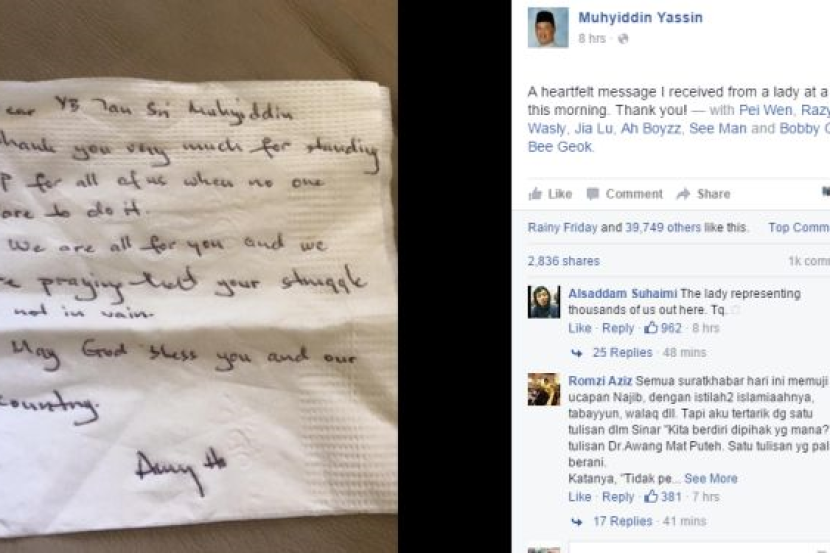 ear YB Tan Sri Muhyiddin
hank you very much for standing
p for all of us when no one
are to do it.
We are all for you and we
e praying that your struggle
not in vain.
May God bless you and our
country.
Muhyiddin Yassin
8 hrs ·
A heartfelt message I received from a lady at a
this morning. Thank you! — with Pei Wen, Razy
Wasly, Jia Lu, Ah Boyzz, See Man and Bobby
Bee Geok.
Like Comment Share
Rainy Friday and 39,749 others like this. Top Comm
2,836 shares 1k com
Alsaddam Suhaimi The lady representing
thousands of us out here. Tq.
Like · Reply · 962 · 8 hrs
25 Replies · 48 mins
Romzi Aziz Semua suratkhabar hari ini memuji
ucapan Najib, dengan istilah2 islamiaahnya,
tabayyun, walaq dll. Tapi aku tertarik dg satu
tulisan dlm Sinar "Kita berdiri dipihak yg mana?
tulisan Dr.Awang Mat Puteh. Satu tulisan yg pal
berani.
Katanya, "Tidak pe... See More
Like · Reply · 381 · 7 hrs
17 Replies · 41 mins